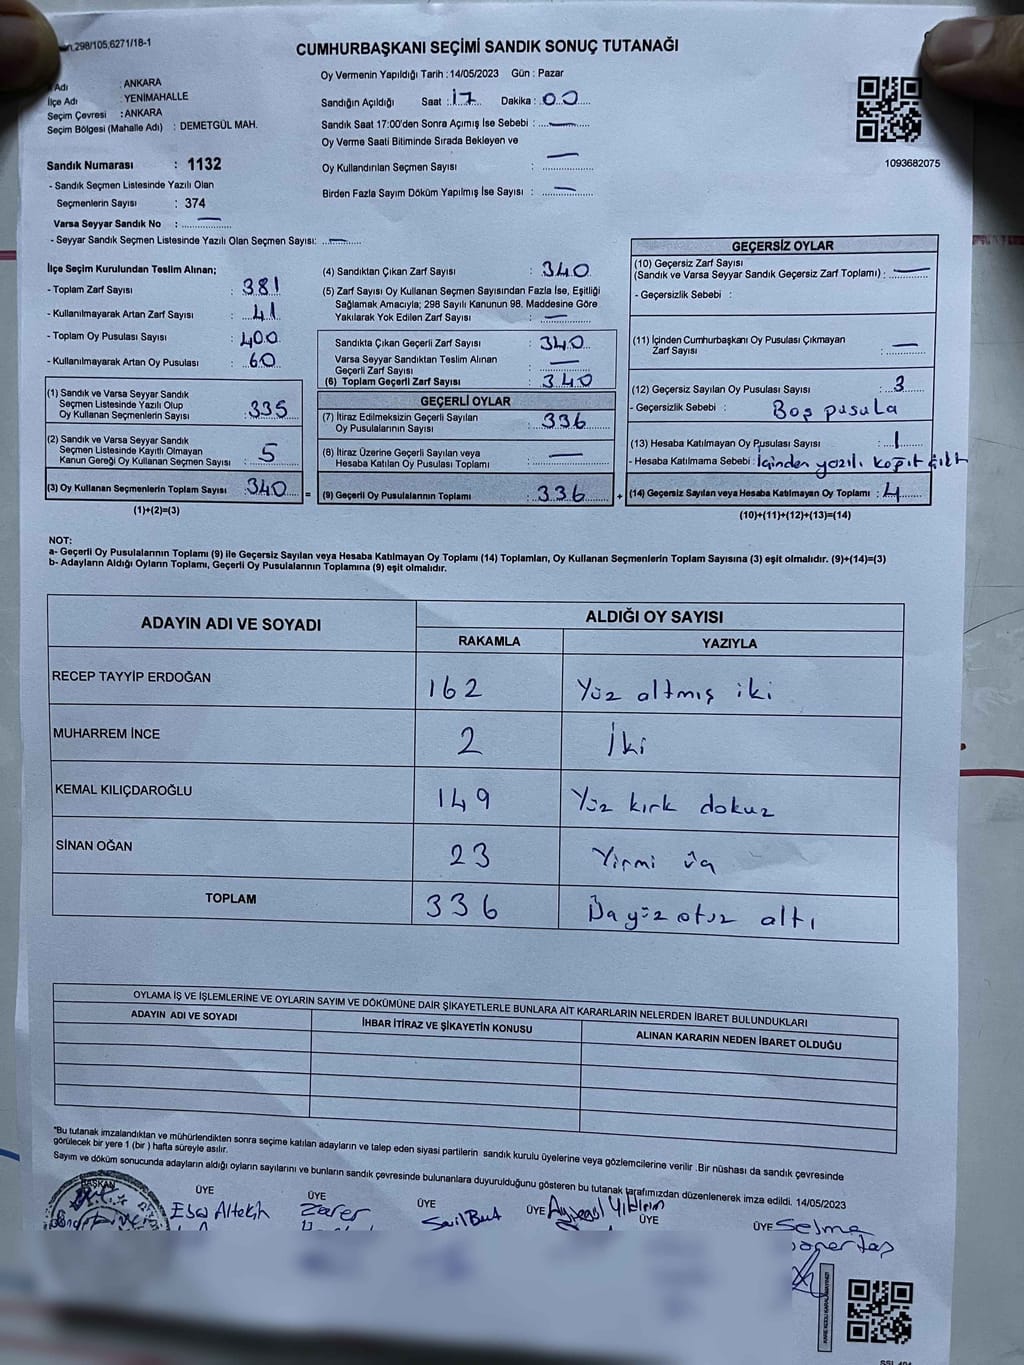 298/105;6271/18-1
CUMHURBAŞKANI SEÇİMİ SANDIK SONUÇ TUTANAĞI
Adı : ANKARA
İlçe Adı : YENİMAHALLE
Seçim Çevresi : ANKARA
Seçim Bölgesi (Mahalle Adı) : DEMETGÜL MAH.
Oy Vermenin Yapıldığı Tarih : 14/05/2023 Gün : Pazar
Sandığın Açıldığı Saat : 17 Dakika : 00
Sandık Saat 17:00'den Sonra Açımış İse Sebebi : —
Oy Verme Saati Bitiminde Sırada Bekleyen ve
Oy Kullandırılan Seçmen Sayısı : —
Birden Fazla Sayım Döküm Yapılmış İse Sayısı : —
1093682075
Sandık Numarası : 1132
- Sandık Seçmen Listesinde Yazılı Olan
Seçmenlerin Sayısı : 374
Varsa Seyyar Sandık No : —
- Seyyar Sandık Seçmen Listesinde Yazılı Olan Seçmen Sayısı: —
İlçe Seçim Kurulundan Teslim Alınan;
- Toplam Zarf Sayısı : 381
- Kullanılmayarak Artan Zarf Sayısı : 41
- Toplam Oy Pusulası Sayısı : 400
- Kullanılmayarak Artan Oy Pusulası : 60
(1) Sandık ve Varsa Seyyar Sandık
Seçmen Listesinde Yazılı Olup
Oy Kullanan Seçmenlerin Sayısı : 335
(2) Sandık ve Varsa Seyyar Sandık
Seçmen Listesinde Kayıtlı Olmayan
Kanun Gereği Oy Kullanan Seçmen Sayısı : 5
(3) Oy Kullanan Seçmenlerin Toplam Sayısı : 340
(1)+(2)=(3)
(4) Sandıktan Çıkan Zarf Sayısı : 340
(5) Zarf Sayısı Oy Kullanan Seçmen Sayısından Fazla İse, Eşitliği
Sağlamak Amacıyla; 298 Sayılı Kanunun 98. Maddesine Göre
Yakılarak Yok Edilen Zarf Sayısı : —
Sandıkta Çıkan Geçerli Zarf Sayısı : 340
Varsa Seyyar Sandıktan Teslim Alınan
Geçerli Zarf Sayısı : —
(6) Toplam Geçerli Zarf Sayısı : 340
GEÇERLİ OYLAR
(7) İtiraz Edilmeksizin Geçerli Sayılan
Oy Pusulalarının Sayısı : 336
(8) İtiraz Üzerine Geçerli Sayılan veya
Hesaba Katılan Oy Pusulası Toplamı : —
= (9) Geçerli Oy Pusulalarının Toplamı : 336 +
GEÇERSİZ OYLAR
(10) Geçersiz Zarf Sayısı
(Sandık ve Varsa Seyyar Sandık Geçersiz Zarf Toplamı) : —
- Geçersizlik Sebebi :
(11) İçinden Cumhurbaşkanı Oy Pusulası Çıkmayan
Zarf Sayısı : —
(12) Geçersiz Sayılan Oy Pusulası Sayısı : 3
- Geçersizlik Sebebi : Boş pusula
(13) Hesaba Katılmayan Oy Pusulası Sayısı : 1
- Hesaba Katılmama Sebebi : İçinden yazılı kağıt çıktı
(14) Geçersiz Sayılan veya Hesaba Katılmayan Oy Toplamı : 4
(10)+(11)+(12)+(13)=(14)
NOT:
a- Geçerli Oy Pusulalarının Toplamı (9) ile Geçersiz Sayılan veya Hesaba Katılmayan Oy Toplamı (14) Toplamları, Oy Kullanan Seçmenlerin Toplam Sayısına (3) eşit olmalıdır. (9)+(14)=(3)
b- Adayların Aldığı Oyların Toplamı, Geçerli Oy Pusulalarının Toplamına (9) eşit olmalıdır.
ADAYIN ADI VE SOYADI ALDIĞI OY SAYISI
RAKAMLA YAZIYLA
RECEP TAYYİP ERDOĞAN 162 Yüz altmış iki
MUHARREM İNCE 2 İki
KEMAL KILIÇDAROĞLU 149 Yüz kırk dokuz
SİNAN OĞAN 23 Yirmi üç
TOPLAM 336 Üçyüz otuz altı
OYLAMA İŞ VE İŞLEMLERİNE VE OYLARIN SAYIM VE DÖKÜMÜNE DAİR ŞİKAYETLERLE BUNLARA AİT KARARLARIN NELERDEN İBARET BULUNDUKLARI
ADAYIN ADI VE SOYADI İHBAR İTİRAZ VE ŞİKAYETİN KONUSU ALINAN KARARIN NEDEN İBARET OLDUĞU
"Bu tutanak imzalandıktan ve mühürlendikten sonra seçime katılan adayların ve talep eden siyasi partilerin sandık kurulu üyelerine veya gözlemcilerine verilir. Bir nüshası da sandık çevresinde
görülecek bir yere 1 (bir) hafta süreyle asılır.
Sayım ve döküm sonucunda adayların aldığı oyların sayılarını ve bunların sandık çevresinde bulunanlara duyurulduğunu gösteren bu tutanak tarafımızdan düzenlenerek imza edildi. 14/05/2023
BAŞKAN ÜYE ÜYE ÜYE ÜYE ÜYE ÜYE
Zafer
Yıldırım
Selma